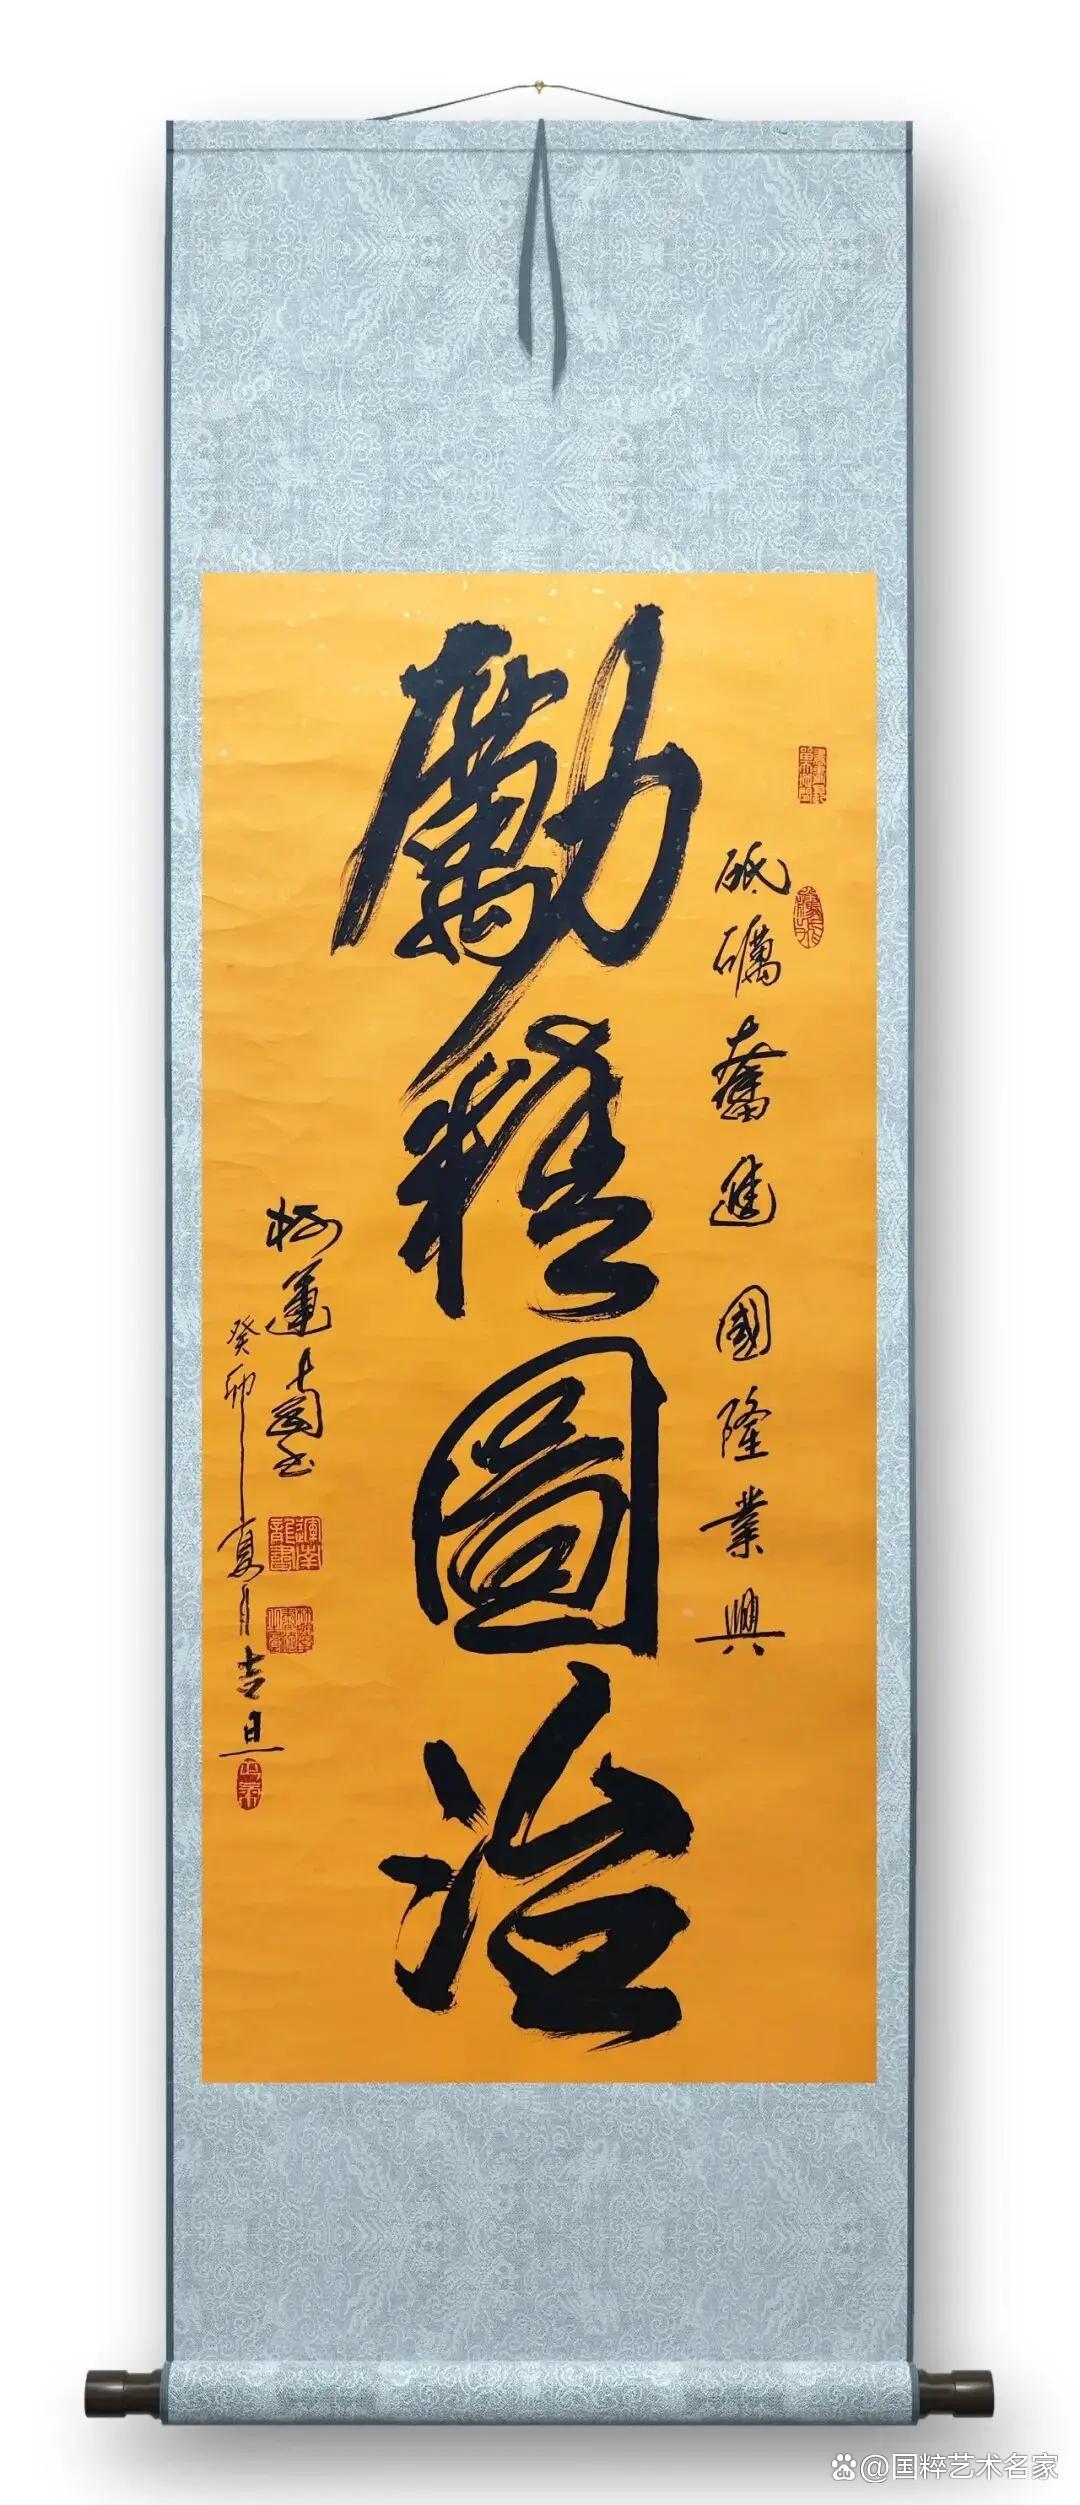 砥礪奮進 國隆業興
勵精圖治
柯運南書
癸卯夏月吉旦
@国粹艺术名家